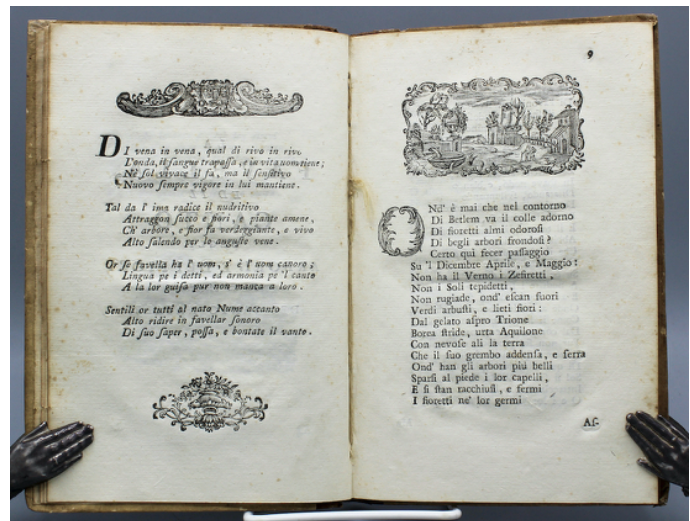 DI vena in vena, qual di rivo in rivo
L'onda, il sangue trapassa, e in vita uom tiene;
Nè sol vivace il fa, ma il sensitivo
Nuovo sempre vigore in lui mantiene.
Tal da l' ima radice il nudritivo
Attraggon succo e fiori, e piante amene,
Ch' arbore, e fior fa verdeggiante, e vivo
Alto salendo per le anguste vene.
Or se favella ha l' uom, s' è l' uom canoro;
Lingua pe i detti, ed armonia pe 'l canto
A la lor guisa pur non manca a loro.
Sentili or tutti al nato Nume accanto
Alto ridire in favellar sonoro
Di suo saper, possa, e bontate il vanto.
9
ONd' è mai che nel contorno
Di Betlem va il colle adorno
Di fioretti almi odorosi
Di begli arbori frondosi?
Certo quì fecer passaggio
Su 'l Dicembre Aprile, e Maggio:
Non ha il Verno i Zefiretti,
Non i Soli tepidetti,
Non rugiade, ond' escan fuori
Verdi arbusti, e lieti fiori:
Dal gelato aspro Trione
Borea stride, urta Aquilone
Con nevose ali la terra
Che il suo grembo addensa, e serra
Ond' han gli arbori più belli
Sparsi al piede i lor capelli,
E si stan racchiusi, e fermi
I fioretti ne' lor germi
As-